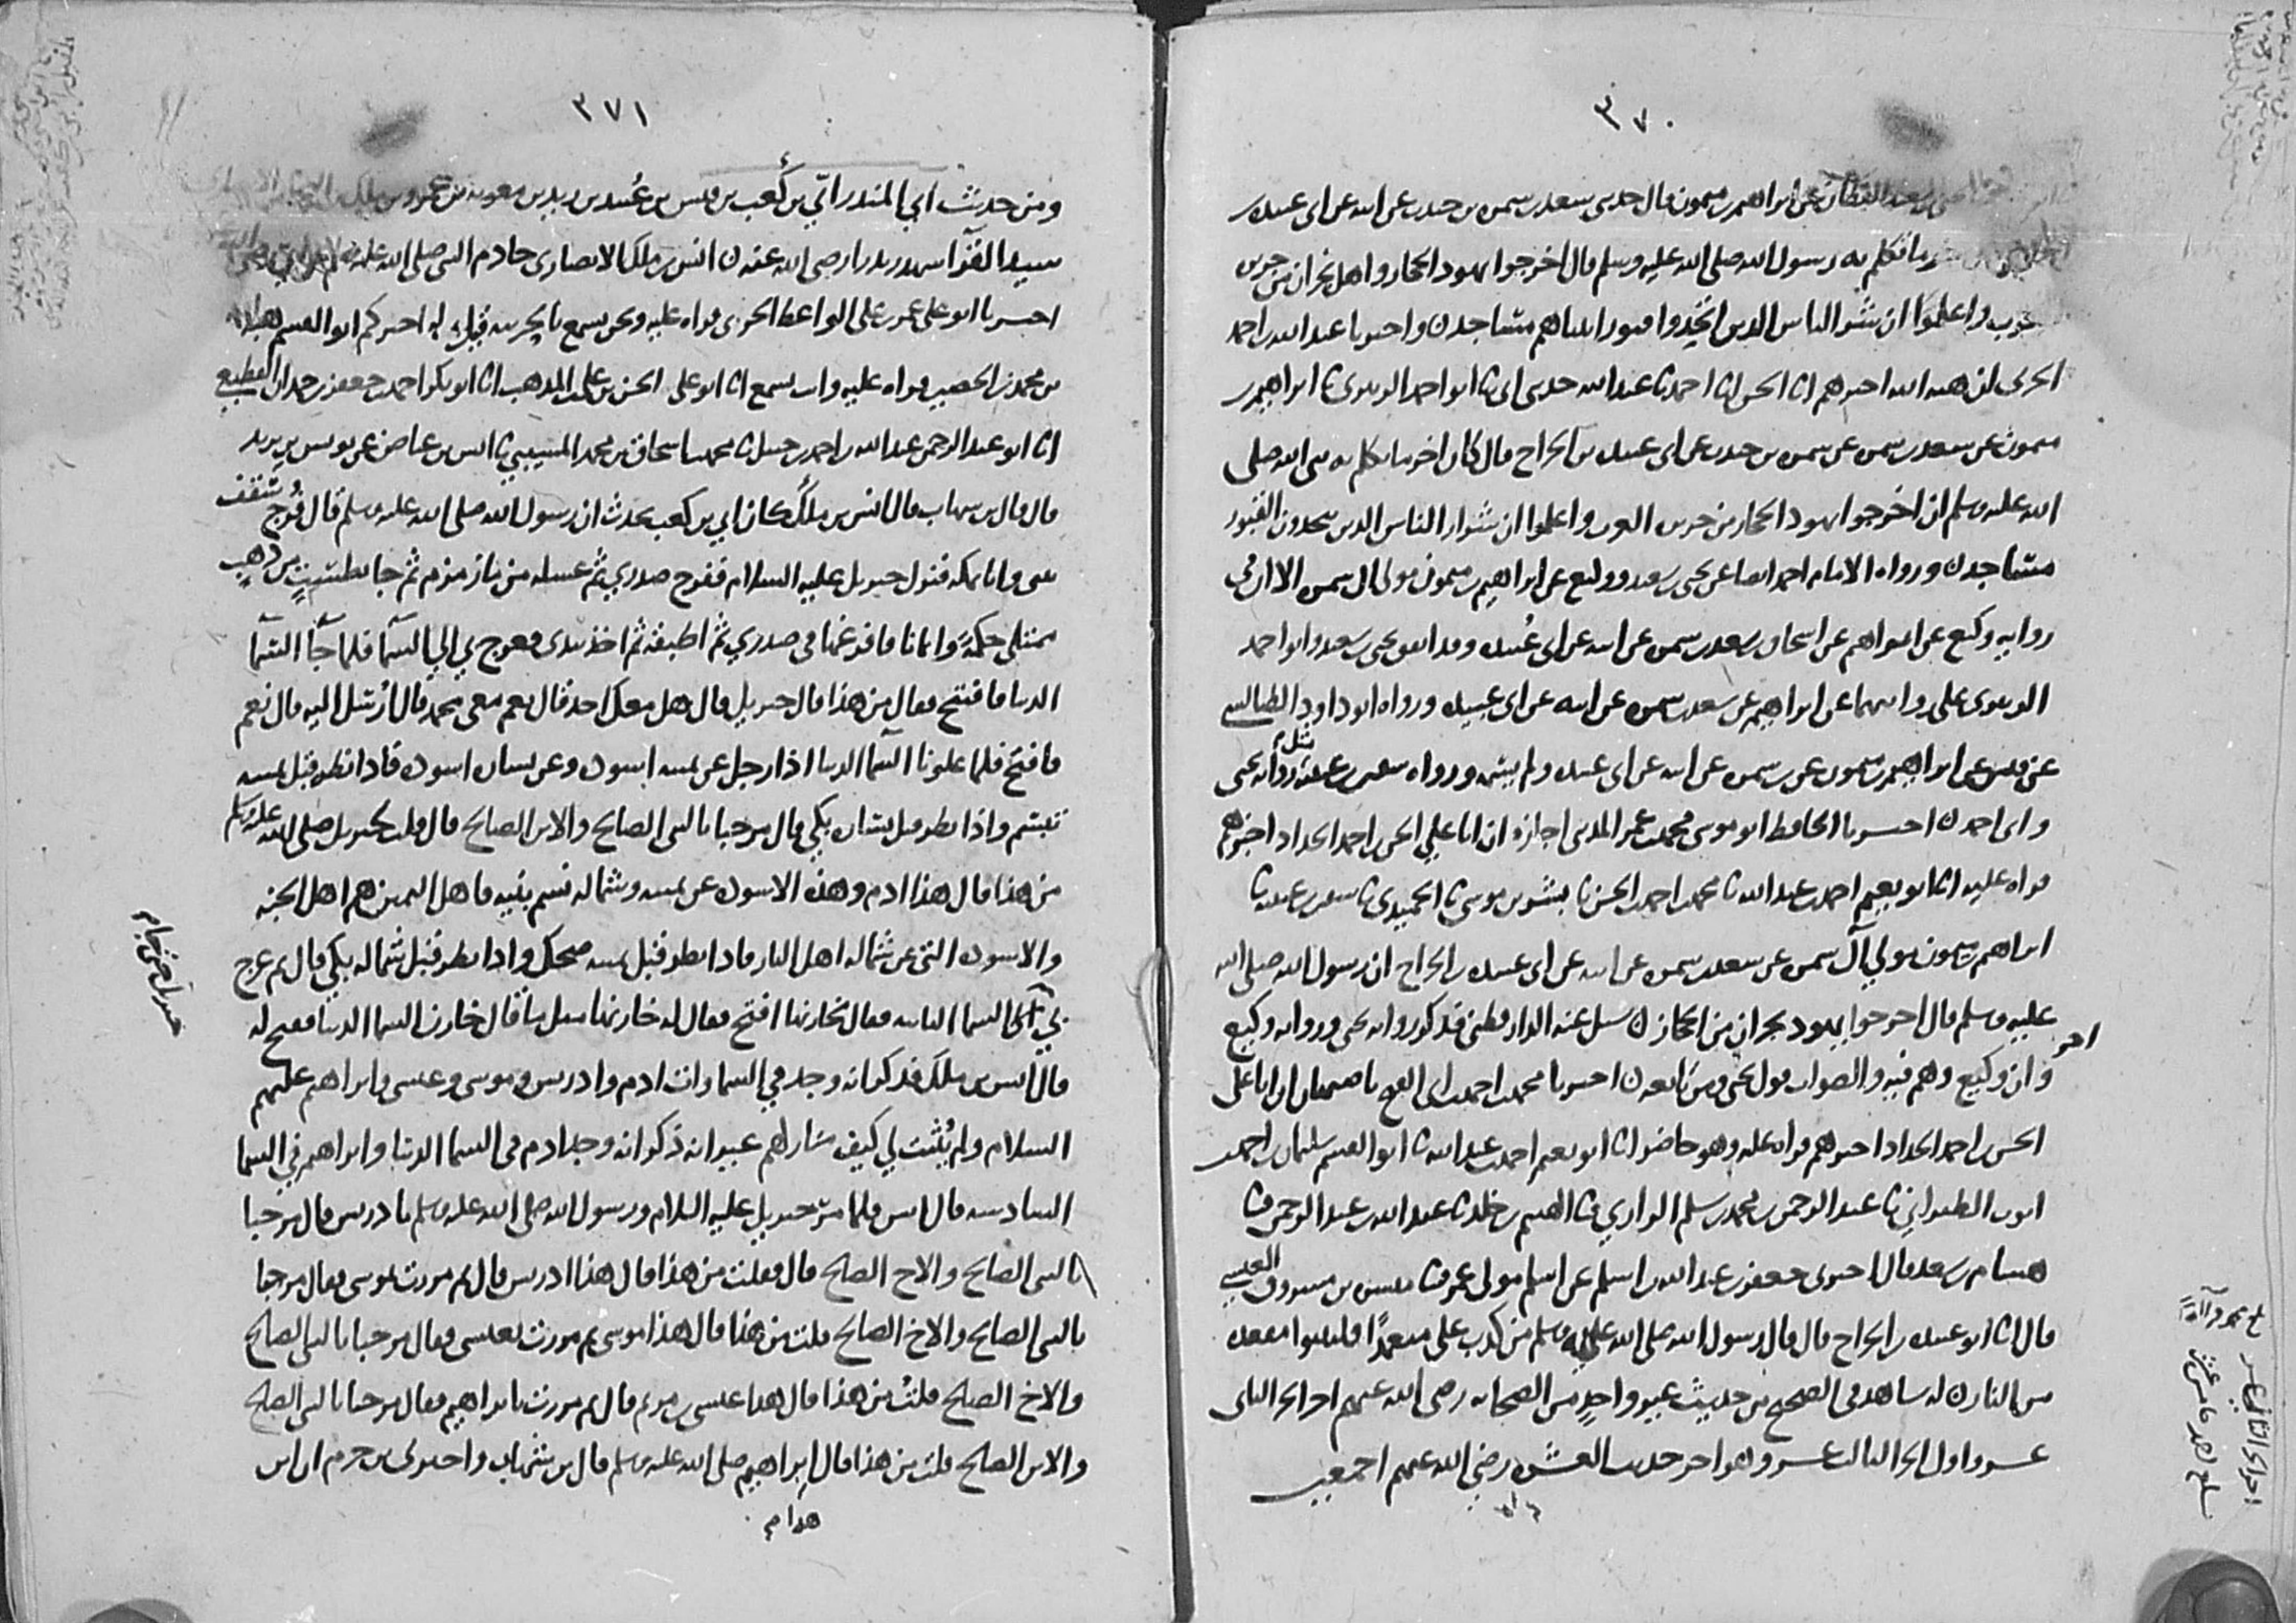 ٣٧٠
يحيى بن سعيد القطان عن ابراهيم بن ميمون قال حدثني سعد بن سمرة بن جندب عن ابيه عن ابي عبيدة بن
ما تكلم به رسول الله صلى الله عليه وسلم قال اخرجوا يهود الحجاز واهل نجران من جزيرة
العرب واعلموا ان شر الناس الذين اتخذوا قبور انبيائهم مساجد واخبرنا عبد الله بن احمد
الحربي ان هبة الله اخبرهم انا الحسن انا احمد نا عبد الله حدثني ابي نا ابو احمد الزبيري نا ابراهيم بن
ميمون عن سعد بن سمرة عن سمرة بن جندب عن ابي عبيدة بن الجراح قال كان اخر ما تكلم به نبي الله صلى
الله عليه وسلم ان اخرجوا يهود الحجاز من جزيرة العرب واعلموا ان شرار الناس الذين يتخذون القبور
مساجد ورواه الامام احمد ايضا عن يحيى بن سعيد ووكيع عن ابراهيم بن ميمون مولى ال سمرة الا ان في
رواية وكيع عن ابراهيم عن اسحاق بن سعد بن سمرة عن ابيه عن ابي عبيدة وقد اتفق يحيى بن سعيد وابو احمد
الزبيري على روايتهما عن ابراهيم عن سعد بن سمرة عن ابيه عن ابي عبيدة ورواه ابو داود الطيالسي
عن قيس عن ابراهيم بن ميمون عن بن سمرة عن ابيه عن ابي عبيدة ولم يسمه ورواه سفيان بن عيينة مثل رواية يحيى
وابي احمد اخبرنا الحافظ ابو موسى محمد بن عمر المديني اجازة ان ابا علي الحسن بن احمد الحداد اخبرهم
قراة عليه انا ابو نعيم احمد بن عبد الله نا محمد بن احمد بن الحسن نا بشر بن موسى نا الحميدي نا سفين بن عيينة نا
ابراهيم بن ميمون مولى آل سمرة عن سعد بن سمرة عن ابيه عن ابي عبيدة بن الجراح ان رسول الله صلى الله
عليه وسلم قال اخرجوا يهود نجران من الحجاز سئل عنه الدارقطني فذكر رواية يحيى ورواية وكيع
وان وكيع وهم فيه والصواب قول يحيى ومن تابعه اخبرنا محمد بن احمد بن ابي الفتح باصبهان ان ابا علي
اخر
الحسن بن احمد الحداد اخبرهم قراة عليه وهو حاضر انا ابو نعيم احمد بن عبد الله نا ابو القسم سليمان بن احمد بن
ايوب الطبراني نا عبد الرحمن بن محمد بن سلم الرازي نا الهيثم بن خلد نا عبد الله بن عبد الرحمن نا
هشام بن سعد قال اخبرني جعفر بن عبد الله بن اسلم عن اسلم مولى عمر نا ميسرة بن مسروق العبسي
قال انا ابو عبيدة بن الجراح قال قال رسول الله صلى الله عليه وسلم من كذب علي متعمدا فليتبوا مقعده
من النار له شاهد في الصحيح من حديث غير واحد من الصحابة رضي الله عنهم اخر الجزء الثاني
عشر واول الجزء الثالث عشر وهو اخر حديث العشرة رضي الله عنهم اجمعين
٣٧١
ومن حديث ابي المنذر ابي بن كعب بن قيس بن عُبيد بن زيد بن معوية بن عمرو بن ملك بن النجار الانصاري
سيد القرآ شهد بدرا رضي الله عنه انس بن ملك الانصاري خادم النبي صلى الله عليه وسلم عن ابي رضي الله
اخبرنا ابو علي عمر بن علي الواعظ الحربي قراة عليه ونحن نسمع بالحربية قيل له اخبركم ابو القسم هبة الله
بن محمد بن الحصين قراة عليه وانت تسمع انا ابو علي الحسن بن علي بن المذهب انا ابو بكر احمد بن جعفر بن حمدان القطيعي
انا ابو عبد الرحمن عبد الله بن احمد بن حنبل نا محمد بن اسحاق بن محمد المسيبي نا انس بن عياض عن يونس بن يزيد
قال قال بن شهاب قال انس بن ملك كان ابي بن كعب يحدث ان رسول الله صلى الله عليه وسلم قال فُرج سقف
بيتي وانا بمكة فنزل جبريل عليه السلام ففرج صدري ثم غسله من ماز مزم ثم جا بطست من ذهب
ممتلئ حكمةً وايمانا فافرغها في صدري ثم اطبقه ثم اخذ بيدي فعرج بي الى السما فلما جآ السما
الدنيا فافتتح فقال من هذا قال جبريل قال هل معك احد قال نعم معي محمد قال اُرسل اليه قال نعم
فافتح فلما علونا السما الدنيا اذا رجل عن يمينه اسودة وعن يساره اسودة فاذا نظر قبل يمينه
تبسم واذا نظر قبل يساره بكى قال مرحبا بالنبي الصالح والابن الصالح قال قلت لجبريل صلى الله عليه وسلم
من هذا قال هذا ادم وهذه الاسودة عن يمينه وشماله نسم بنيه فاهل اليمين هم اهل الجنة
والاسودة التي عن شماله اهل النار فاذا نظر قبل يمينه ضحك واذا نظر قبل شماله بكى قال ثم عرج
بي الى السما الثانية فقال لخازنها افتح فقال له خازنها مثل ما قال خازن السما الدنيا ففتح له
قال انس بن ملك فذكر انه وجد في السماوات ادم وادريس وموسى وعيسى وابراهيم عليهم
السلام ولم يُثبت لي كيف منازلهم غير انه ذكر انه وجد ادم في السما الدنيا وابراهيم في السما
السادسة قال انس فلما مر جبريل عليه السلام ورسول الله صلى الله عليه وسلم بادريس قال مرحبا
بالنبي الصالح والاخ الصالح قال فقلت من هذا قال هذا ادريس قال ثم مررت بموسى فقال مرحبا
بالنبي الصالح والاخ الصالح قلت من هذا قال هذا موسى ثم مررت بعيسى فقال مرحبا بالنبي الصالح
والاخ الصالح قلت من هذا قال هذا عيسى بن مريم قال ثم مررت بابراهيم فقال مرحبا بالنبي الصالح
والابن الصالح قلت من هذا قال ابراهيم صلى الله عليه وسلم قال بن شهاب واخبرني بن حزم ان ابن